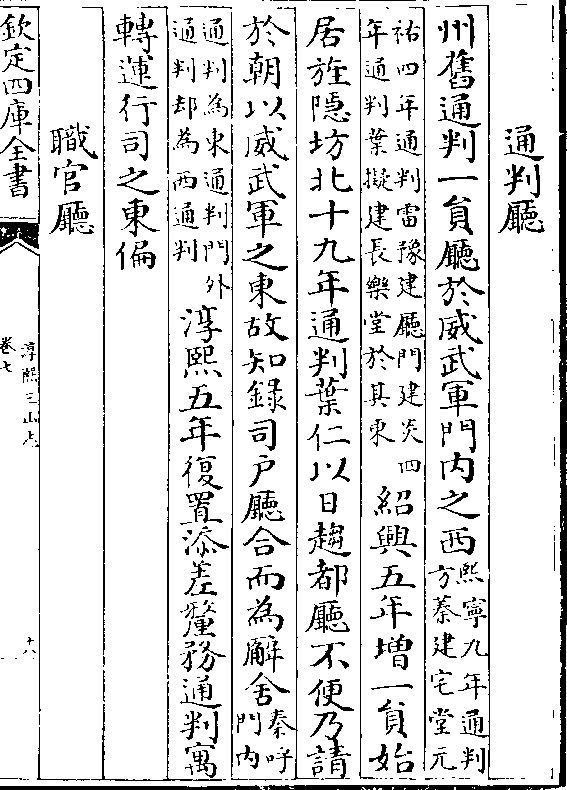 通判廳
州舊通判一員廳於威武軍門内之西熙寧九年通判
方蓁建宅堂元
祐四年通判雷豫建廳門建炎四
年通判葉擬建長樂堂於其東紹興五年増一員始
居旌隱坊北十九年通判葉仁以日趨都廳不便乃請
於朝以威武軍之東故知錄司户廳合而為廨舍秦呼
門内
通判為東通判門外
通判却為西通判淳熙五年復置添差釐務通判寓
轉運行司之東偏
職官廳
欽定四庫全書
淳熙三山志
卷七
十六